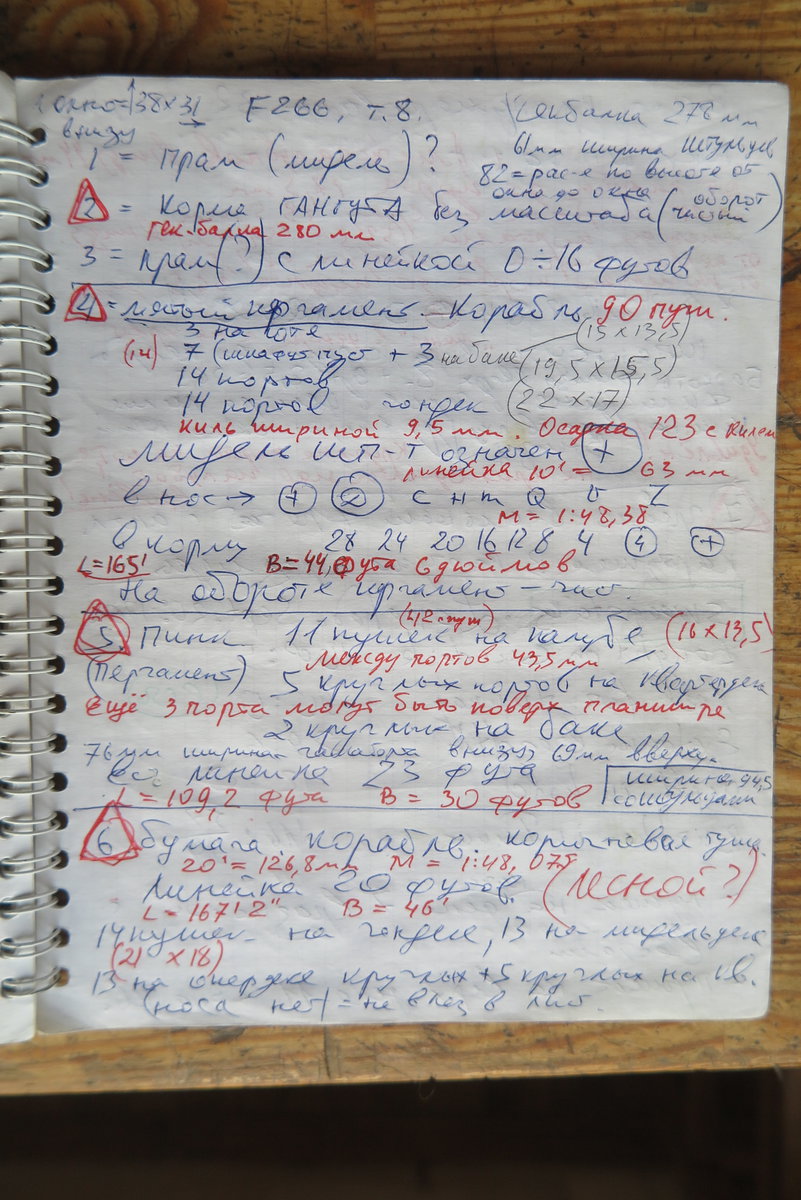 1 окно=38×31 F266, т.8. гекбалка 278 мм
внизу →
61мм ширина штульцев
1 = Прам (мидель)?
82= рас-е по высоте от
окна до окна
2 = Корма ГАНГУТА без масштаба (оборот чистый)
гек-балка 280 мм
3 = прам(?) с линейкой 0÷16 футов
4 = мятый пергамент. Корабль, 90 пуш.
3 на юте (15×13,5)
(14) 7 (шкафут пуст + 3 на баке (19,5×15,5)
14 портов
14 портов гондек (22×17)
киль шириной 9,5 мм. Осадка 123 с килем
мидель шп-т означен (+)
линейка 10' = 63 мм
в нос → (+) (2) с н m Q Z
М = 1:48,38
в корму 28 24 20 16 12 8 4 (4) (+)
L=165' B=44 фута 6 дюймов
На обороте пергамент – чист.
(42 пуш)
5. Пинк 11 пушек на палубе, (16×13,5)
между портов 43,5 мм
(Пергамент) 5 круглых портов на квартердеке
ещё 3 порта могут быть поверх планширя
2 круглых на баке
76мм ширина внизу, 69мм вверху.
вся линейка 23 фута ширина 94,5
L = 109,2 фута B = 30 футов
6 бумага. корабль. коричневая тушь.
20' = 126,8мм М = 1:48,075
линейка 20 футов. (лесной?)
L = 167' 2" B = 46'
14 пушек на гондеке, 13 на мидельдеке
(21 ×18)
13 на опердеке круглых +5 круглых на кв.
(носа нет) = не влез в лист.